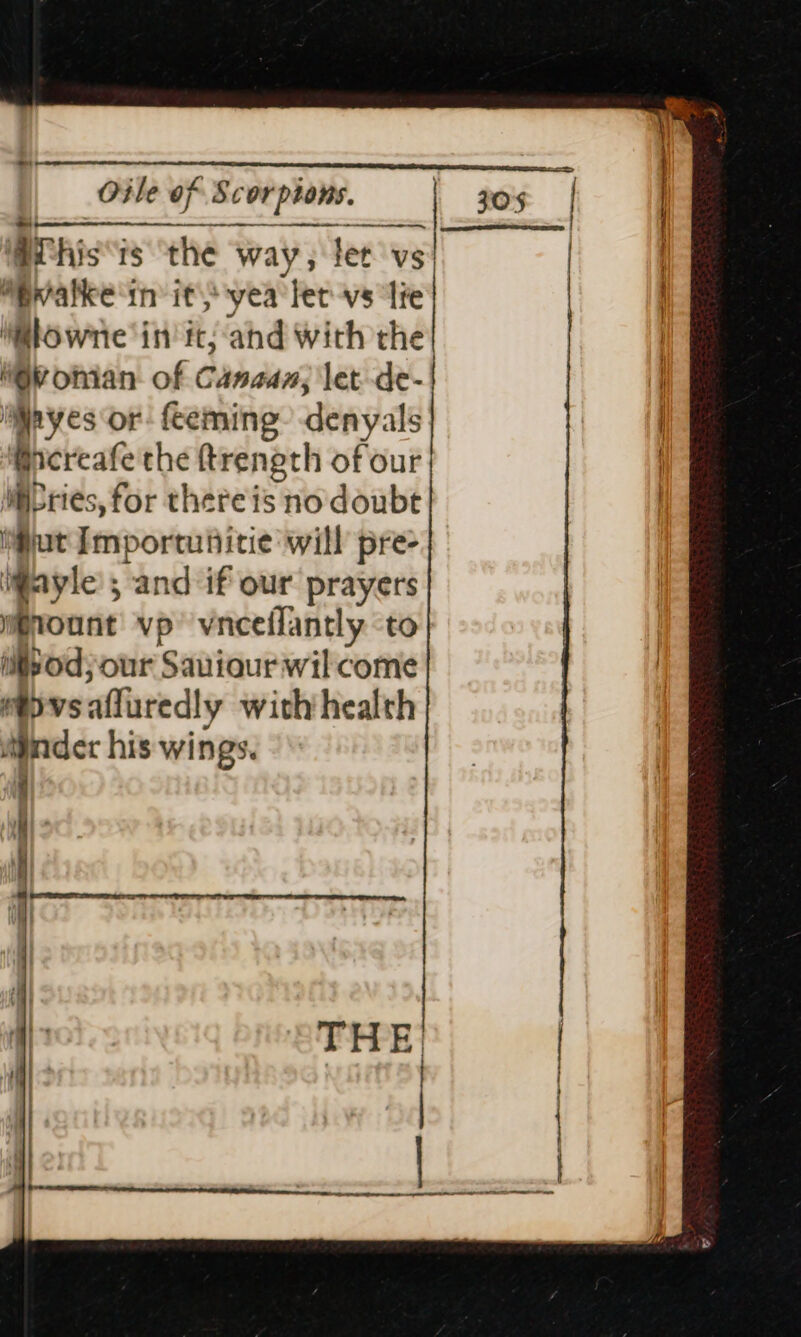 Oile of Scorpions. 305
This is the way, let vs
walke in it, yea let vs lie
downe in it, and with the
woman of Canaan, let de-
layes or ſeeming denyals
increaſe the ſtrength of our
cries, for there is no doubt
but Importunitie will pre-
uayle; and if our prayers
mount vp vnceſſantly to
God, our Sauiour wil come
to vs aſſuredly with health
vnder his wings.
THE